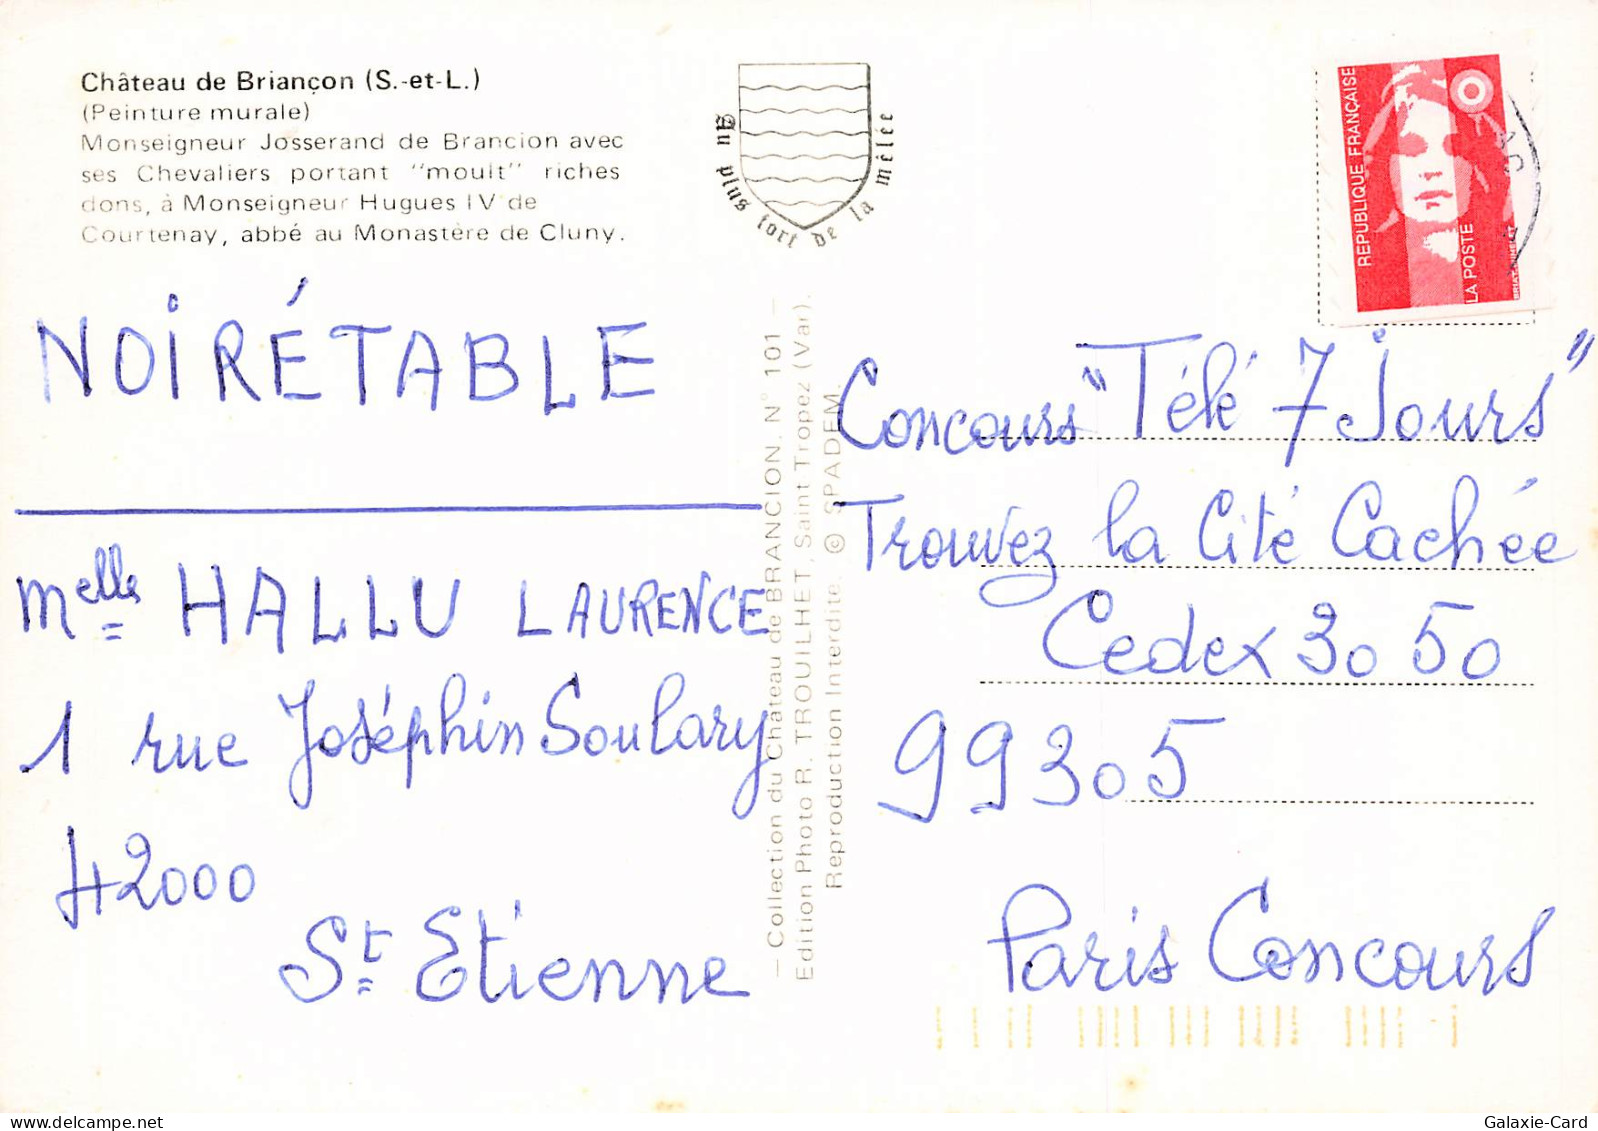 Château de Briançon (S.-et-L.)
(Peinture murale)
Monseigneur Josserand de Brancion avec
ses Chevaliers portant "moult" riches
dons, à Monseigneur Hugues IV de
Courtenay, abbé au Monastère de Cluny.
Au plus fort de la mêlée
RÉPUBLIQUE FRANÇAISE
LA POSTE
NOIRÉTABLE
Melle HALLU LAURENCE
1 rue Joséphin Soulary
42000
St Etienne
— Collection du Château de BRANCION. N° 101 —
Edition Photo R. TROUILHET, Saint Tropez (Var).
Reproduction Interdite. © SPADEM.
Concours "Télé 7 Jours"
Trouvez la Cité Cachée
Cedex 3050
99305
Paris Concours
delcampe.net
Galaxie-Card